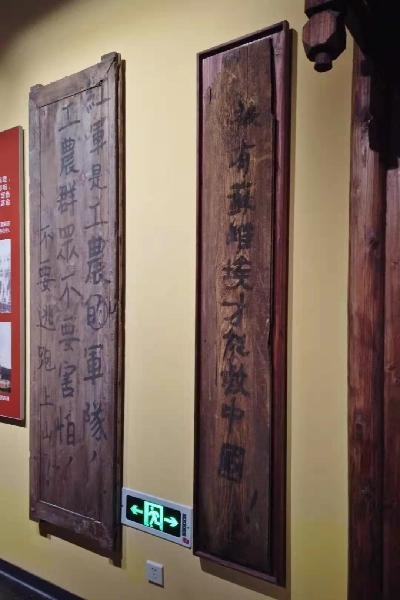 紅軍是工農的軍隊！
工農群眾不要害怕！
不要逃跑上山！
有蘇維埃才能救中國！